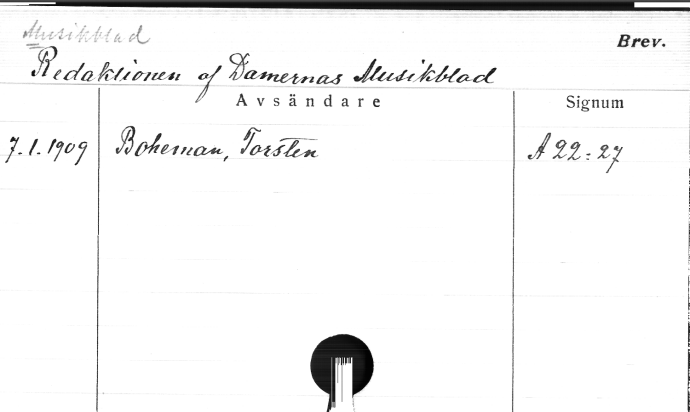 Musikblad
Brev.
Redaktionen af Damernas Musikblad
Avsändare Signum
7.1.1909 Boheman, Torsten A 22:27